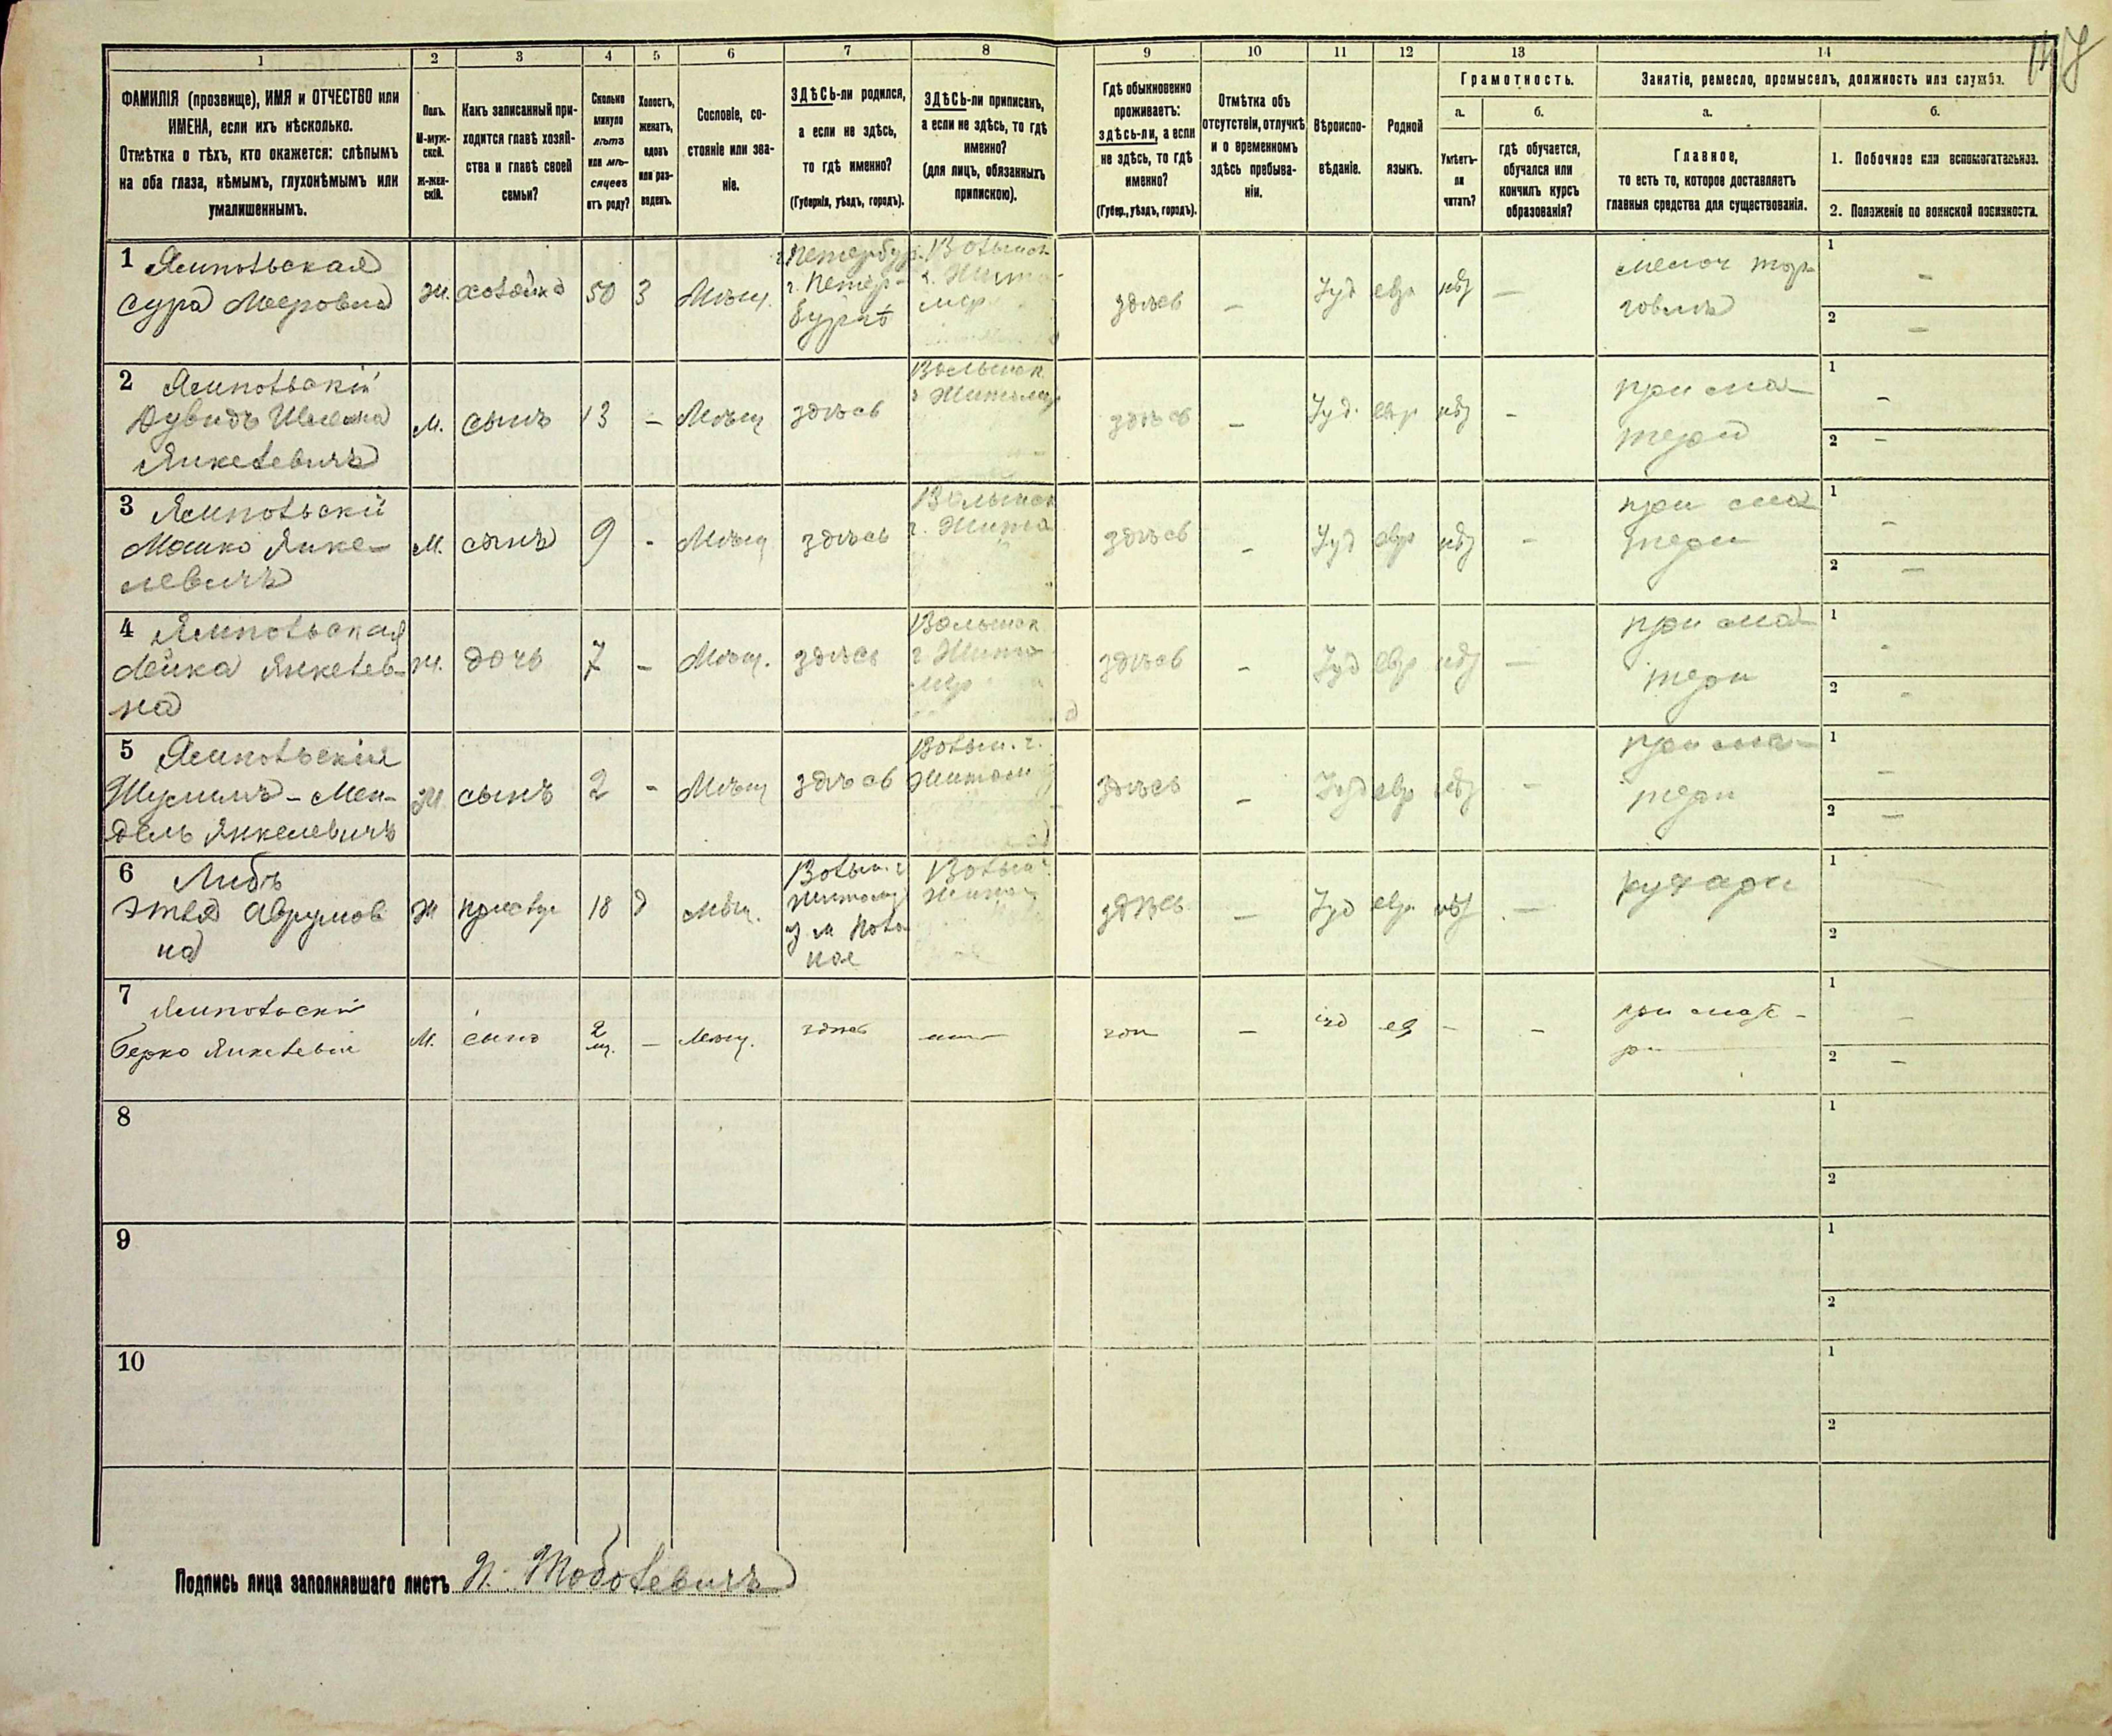 147
1 2 3 4 5 6 7 8 9 10 11 12 13 14
ФАМИЛІЯ (прозвище), ИМЯ и ОТЧЕСТВО или
ИМЕНА, если ихъ нѣсколько.
Отмѣтка о тѣхъ, кто окажется: слѣпымъ
на оба глаза, нѣмымъ, глухонѣмымъ или
умалишеннымъ.
Полъ.
М-муж-
ской.
Ж-жен-
скій.
Какъ записанный при-
ходится главѣ хозяй-
ства и главѣ своей
семьи?
Сколько
минуло
лѣтъ
или мѣ-
сяцевъ
отъ роду?
Холостъ,
женатъ,
вдовъ
или раз-
веденъ.
Сословіе, со-
стояніе или зва-
ніе.
ЗДѢСЬ-ли родился,
а если не здѣсь,
то гдѣ именно?
(Губернія, уѣздъ, городъ).
ЗДѢСЬ-ли приписанъ,
а если не здѣсь, то гдѣ
именно?
(для лицъ, обязанныхъ
припискою).
Гдѣ обыкновенно
проживаетъ:
здѣсь-ли, а если
не здѣсь, то гдѣ
именно?
(Губер., уѣздъ, городъ).
Отмѣтка объ
отсутствіи, отлучкѣ
и о временномъ
здѣсь пребыва-
ніи.
Вѣроиспо-
вѣданіе.
Родной
языкъ.
Грамотность.
а.
Умѣетъ-
ли
читать?
б.
гдѣ обучается,
обучался или
кончилъ курсъ
образованія?
Занятіе, ремесло, промыселъ, должность или служба.
а.
Главное,
то есть то, которое доставляетъ
главныя средства для существованія.
б.
1. Побочное или вспомогательное.
2. Положеніе по воинской повинности.
1 Ямпольская
Сура Меровна
Ж. хозяйка 50 3 Мѣщ.
Петербур.
г. Петер-
бургъ
Волынск
г. Жито
мир
здѣсь – Іуд евр нѣт –
мелоч тор
говля
1 –
2 –
2 Ямпольскій
Дувидъ
Янкелевичъ
М. сынъ 13 – Мѣщ здѣсь
Волынск
г Житомир
здѣсь – Іуд. евр нѣт –
при ма
тери
1 –
2 –
3 Ямпольскій
Мошко Янке-
левичъ
М. сынъ 9 - Мѣщ здѣсь
Волынск
г. Жито
здѣсь – Іуд евр нѣт –
при ма
тери
1 –
2 –
4 Ямпольская
Лейка Янкелев-
на
Ж. дочь 7 – Мѣщ. здѣсь
Волынск
г Жито
мир
здѣсь – Іуд евр нѣт –
при ма
тери
1 -
2 -
5 Ямпольскій
Шулимъ-Мен-
дель Янкелевичъ
сынъ 2 - Мѣщ здѣсь
Волын. г.
Житом
здѣсь – Іуд евр нѣт –
при ма-
тери
1 –
2 –
6
Этля Аврумов
на
Ж 18 д мѣщ.
Волын. г
Житомир
у м Поло
ное
Волын
Жито
здѣсь – Іуд евр. нѣт –
1
2
7 Ямпольскій
Берко Янкелевич
М. сынъ 2
м. – мѣщ. здѣсь
– іуд ев - –
при мате-
ри
1 –
2 –
8
1
2
9
1
2
10
1
2
Подпись лица заполнявшаго листъ